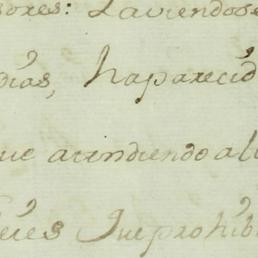 sores: Haviendose
dias, haparecid
que atendiendo al
Jueces Que prohib